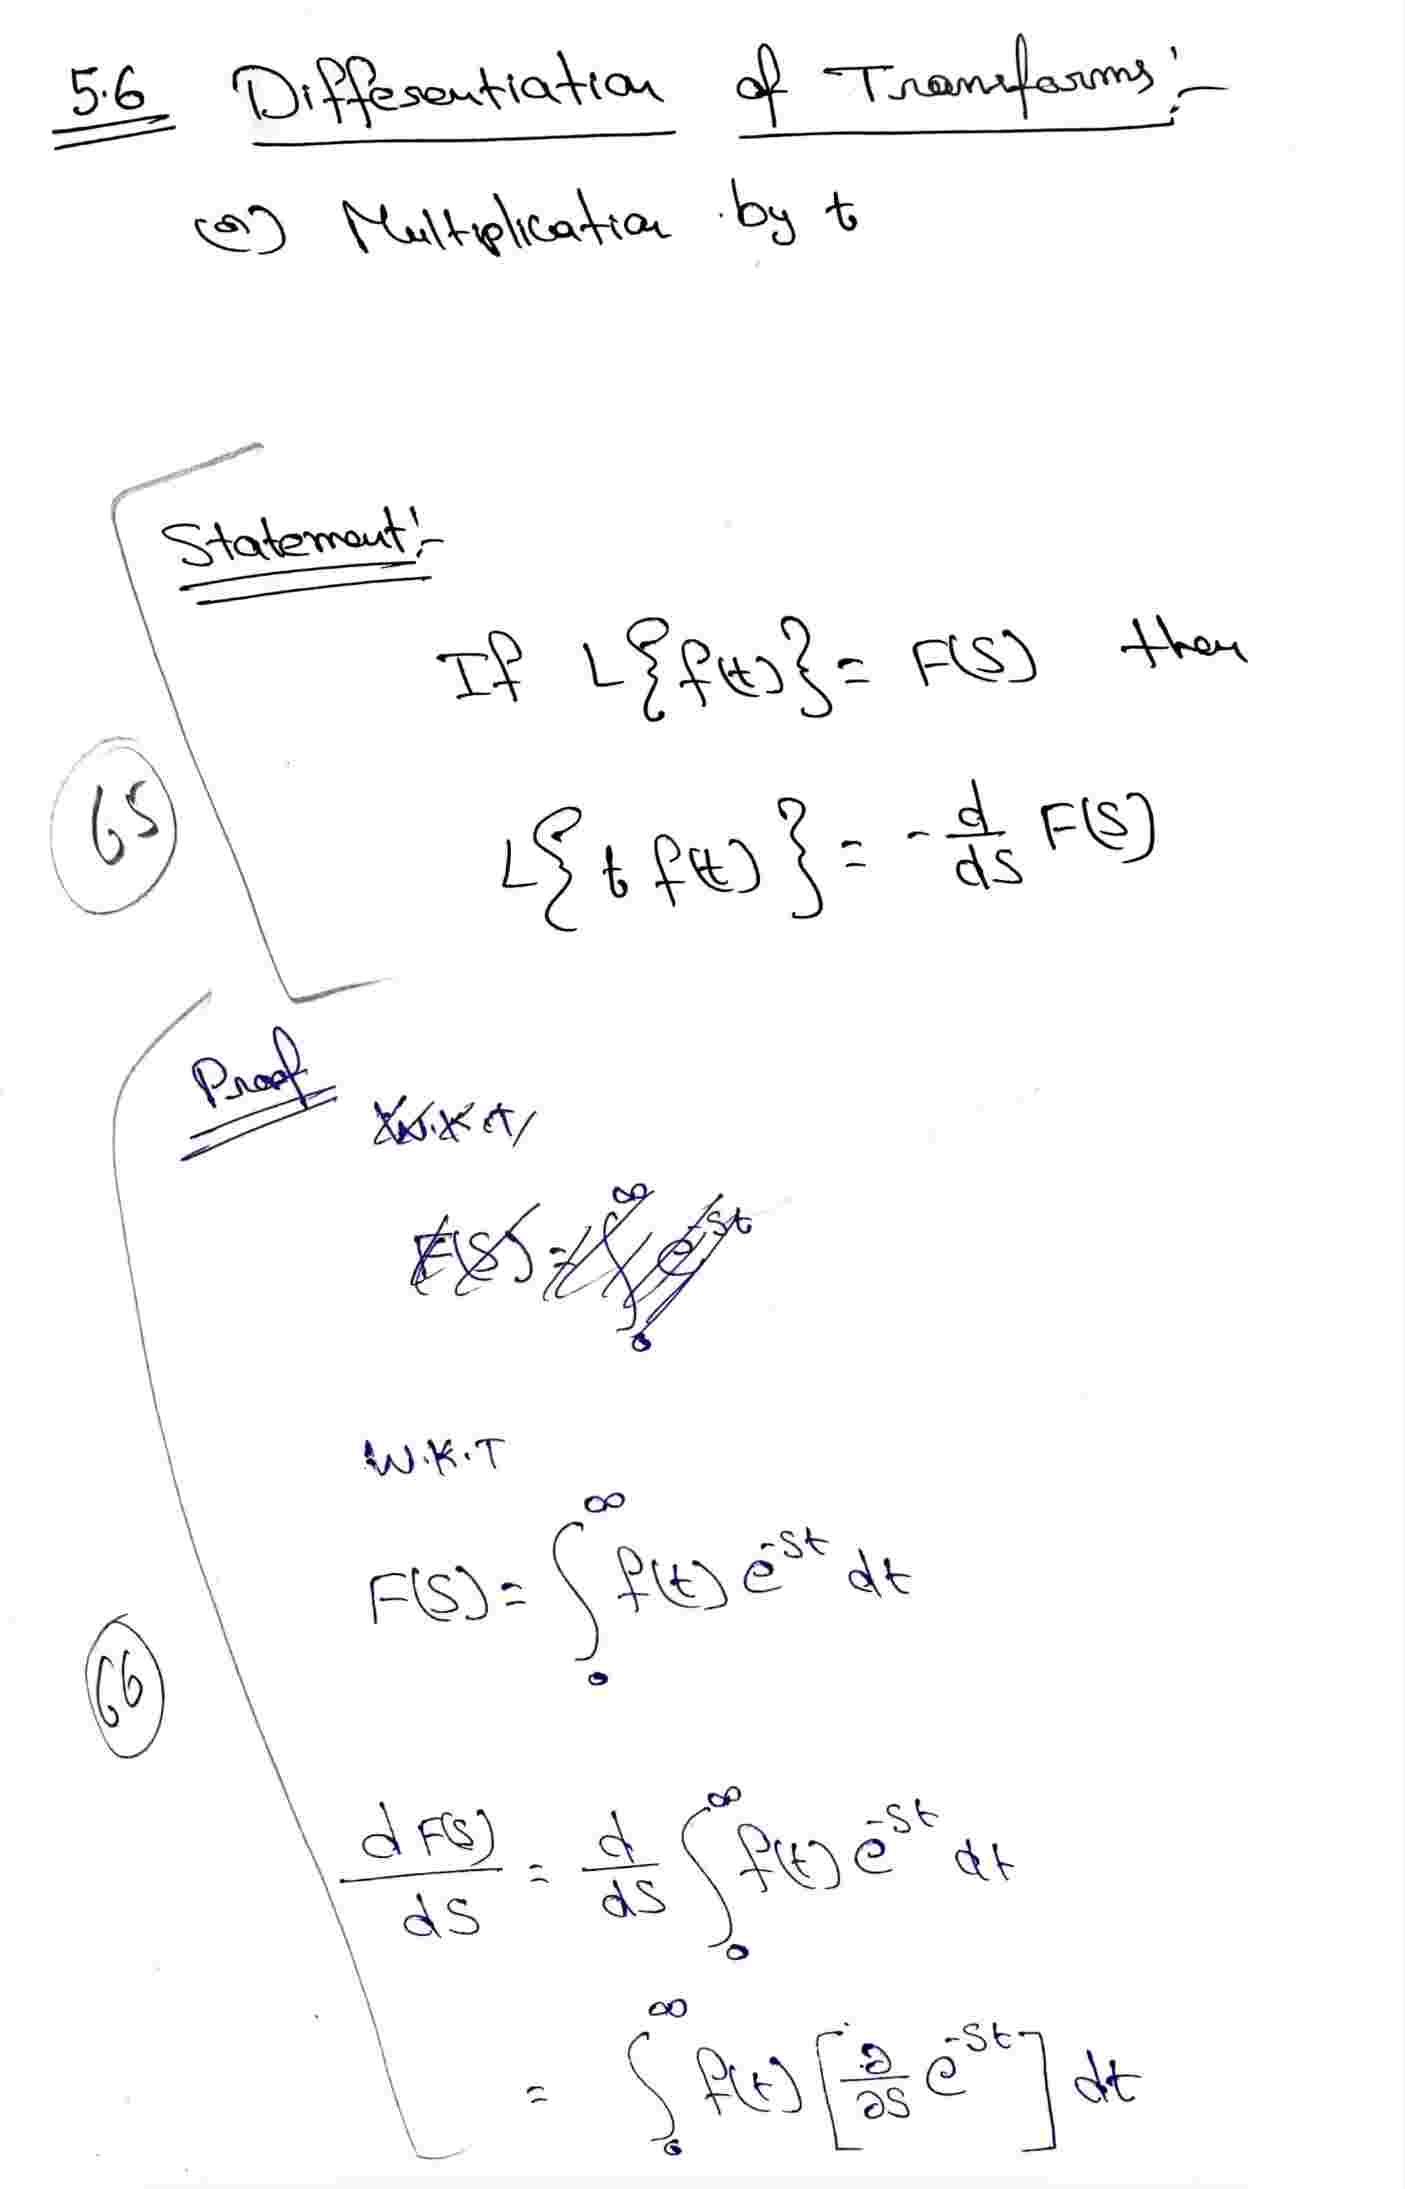 5.6 Differentiation of Transforms:-
(or) Multiplication by t
Statement:-
If L{f(t)} = F(S) then
65
L{t f(t)} = -d/ds F(S)
Proof
W.K.T
F(S) = ∫₀^∞ e^-St
W.K.T
F(S) = ∫₀^∞ f(t) e^-St dt
66
d F(S)/dS = d/dS ∫₀^∞ f(t) e^-St dt
= ∫₀^∞ f(t) [∂/∂S e^-St] dt